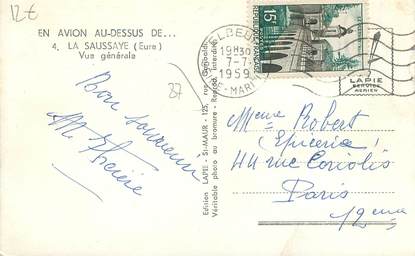 12€
EN AVION AU-DESSUS DE...
4. LA SAUSSAYE (Eure)
Vue générale
37
Bon souvenir
M.
Edition LAPIE - St-MAUR - 125, rue Garibaldi
Véritable photo au bromure - Reprod. interdite
ELBEUF
18H30
7-7
1959
S-MARIT
15F
REPUBLIQUE FRANÇAISE
LAPIE
SERVICE
AERIEN
Meme Robert
Epicerie
44 rue Coriolis
Paris
12eme